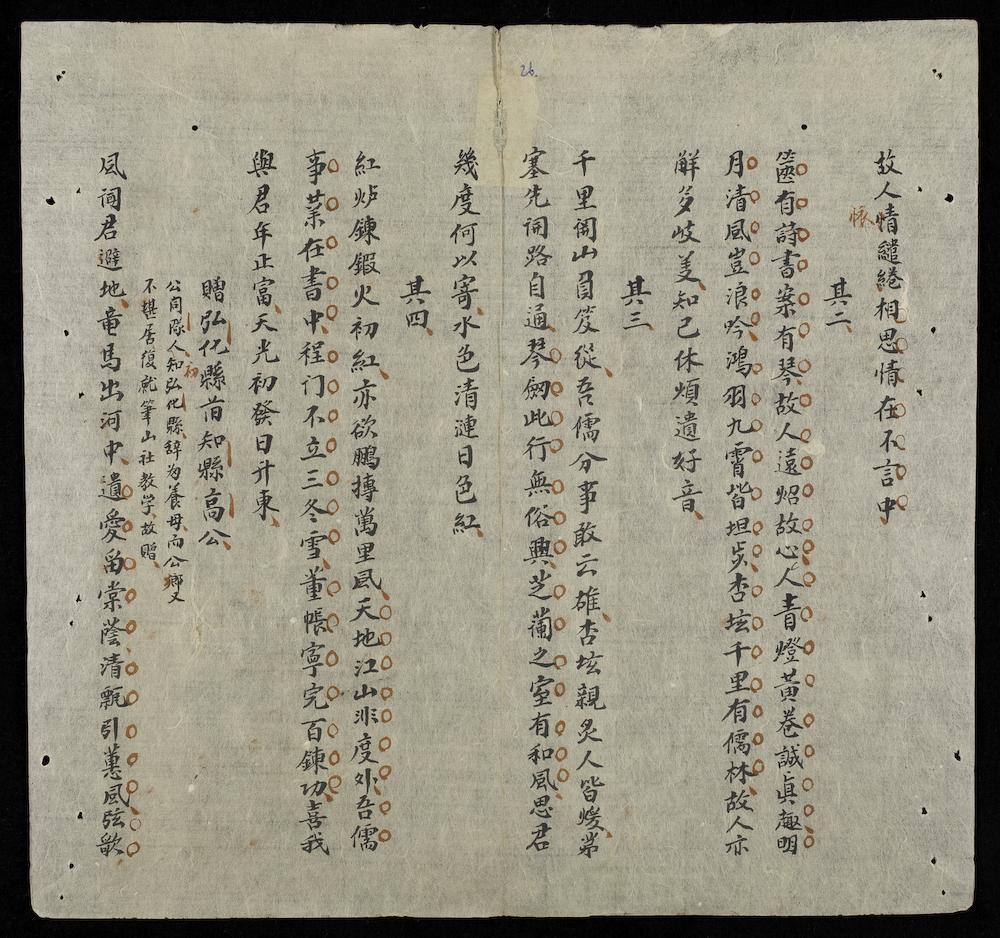 26.
故人情繾綣相思情在不言中
懷
其二
篋有詩書案有琴故人遠炤故心人青燈黃卷誠眞趣明
月清風豈浪吟鴻羽九霄皆坦炗杏坛千里有儒林故人亦
觧多岐羙知已休煩遺好音
其三
千里関山負笈從吾儒分事敢云雄杏坛親炙人皆煖茅
塞先開路自通琴劒此行無俗興芝蘭之室有和風思君
幾度何以寄水色清漣日色紅
其四
紅炉鍊鍜火初紅亦欲鵬摶萬里風天地江山非度外吾儒
事業在書中程门不立三冬雪董帳寧完百鍊功喜我
與君年正富天光初發日升東
贈弘化縣前知縣高公
公同隊人初知弘化縣辞为養母而公鄉又
不堪居復就筆山社教学故贈
風闻君避地竜馬出河中遺愛畄棠蔭清甄引蕙風弦歌